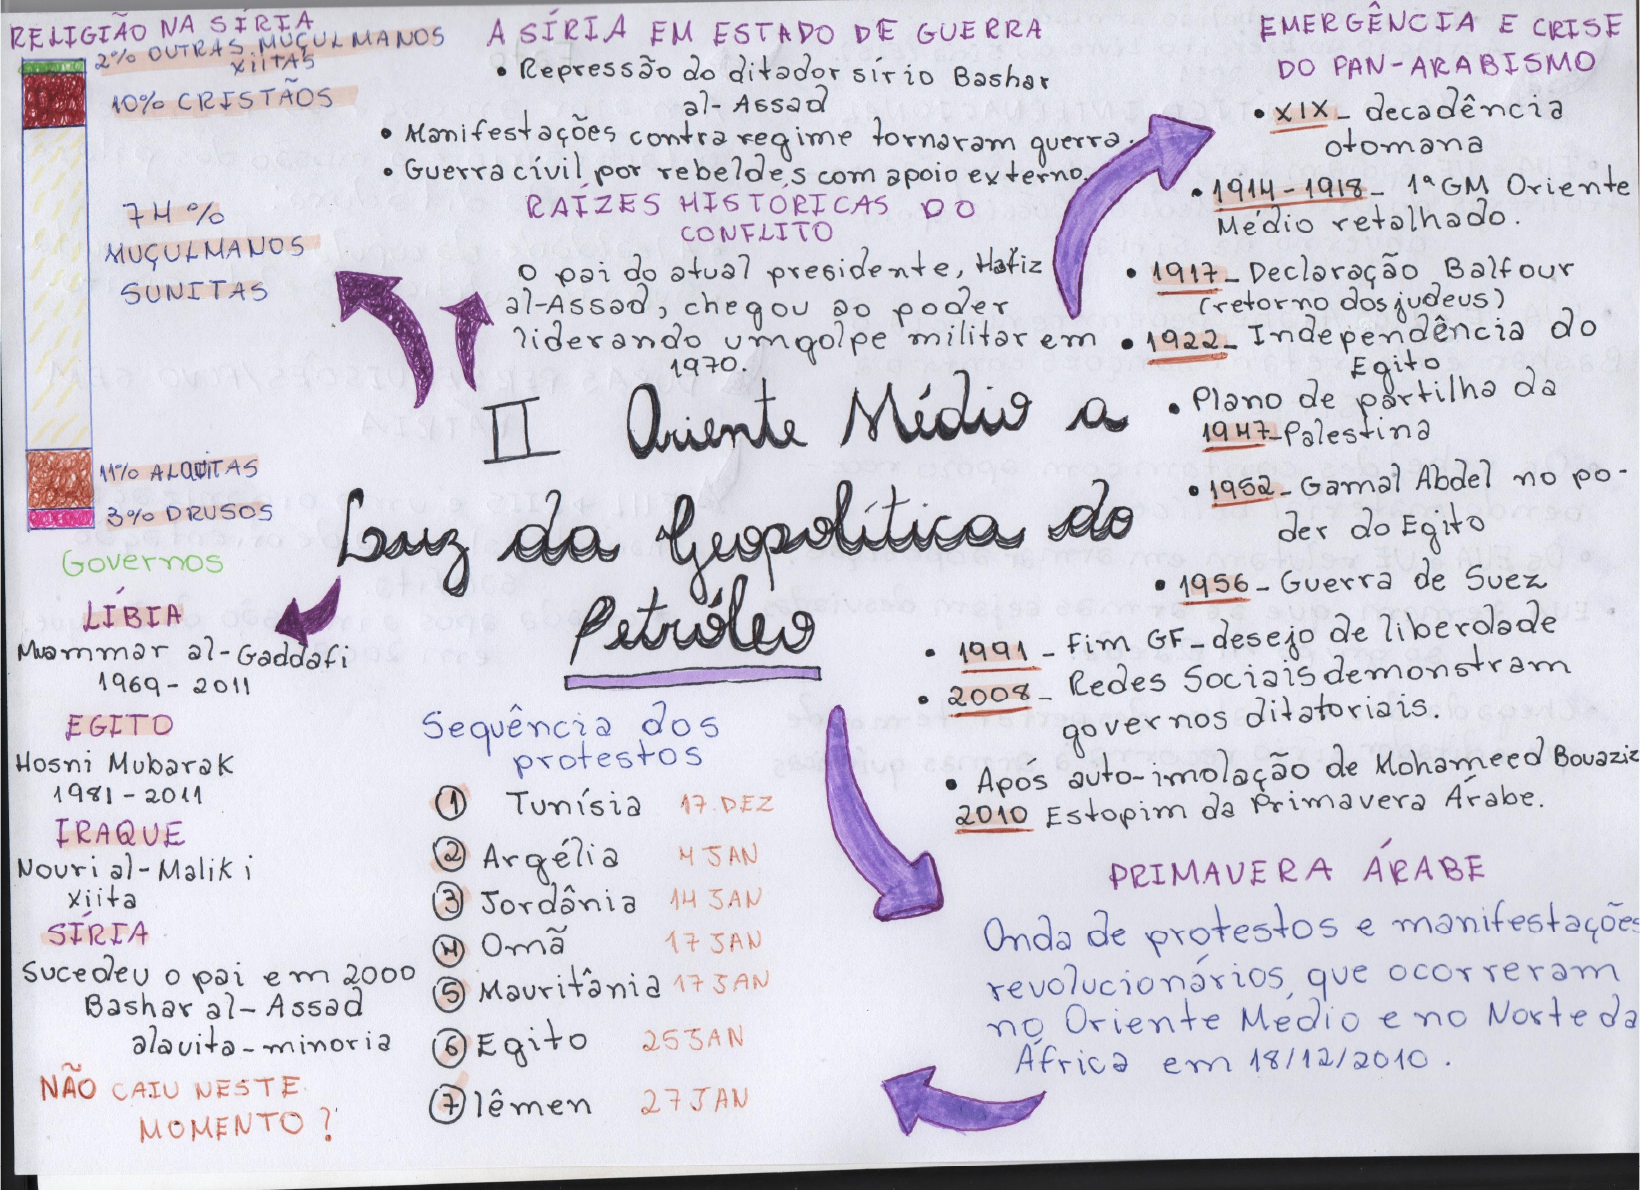 RELIGIÃO NA SÍRIA
2% OUTRAS MUÇULMANOS
XIITAS
10% CRISTÃOS
74%
MUÇULMANOS
SUNITAS
11% ALAUITAS
3% DRUSOS
A SÍRIA EM ESTADO DE GUERRA
• Repressão do ditador sírio Bashar
al-Assad
• Manifestações contra regime tornaram guerra.
• Guerra cívil por rebeldes com apoio externo.
RAÍZES HISTÓRICAS DO
CONFLITO
O pai do atual presidente, Hafiz
al-Assad, chegou ao poder
liderando um golpe militar em
1970.
EMERGÊNCIA E CRISE
DO PAN-ARABISMO
• XIX - decadência
otomana
• 1914-1918 - 1ª GM Oriente
Médio retalhado.
• 1917 - Declaração Balfour
(retorno dos judeus)
• 1922 - Independência do
Egito
• Plano de partilha da
1947 - Palestina
• 1952 - Gamal Abdel no po-
der do Egito
• 1956 - Guerra de Suez
• 1991 - Fim GF - desejo de liberdade
• 2008 - Redes Sociais demonstram
governos ditatoriais.
• Após auto-imolação de Mohameed Bouaziz
2010 Estopim da Primavera Árabe.
II Oriente Médio a
Luz da Geopolítica do
Petróleo
Governos
LÍBIA
Muammar al-Gaddafi
1969-2011
EGITO
Hosni Mubarak
1981-2011
IRAQUE
Nouri al-Maliki
xiita
SÍRIA
Sucedeu o pai em 2000
Bashar al-Assad
alauita-minoria
NÃO CAIU NESTE
MOMENTO?
Sequência dos
protestos
1 Tunísia 17 DEZ
2 Argélia 4 JAN
3 Jordânia 14 JAN
4 Omã 17 JAN
5 Mauritânia 17 JAN
6 Egito 25 JAN
7 Iêmen 27 JAN
PRIMAVERA ÁRABE
Onda de protestos e manifestações
revolucionários que ocorreram
no Oriente Médio e no Norte da
África em 18/12/2010.